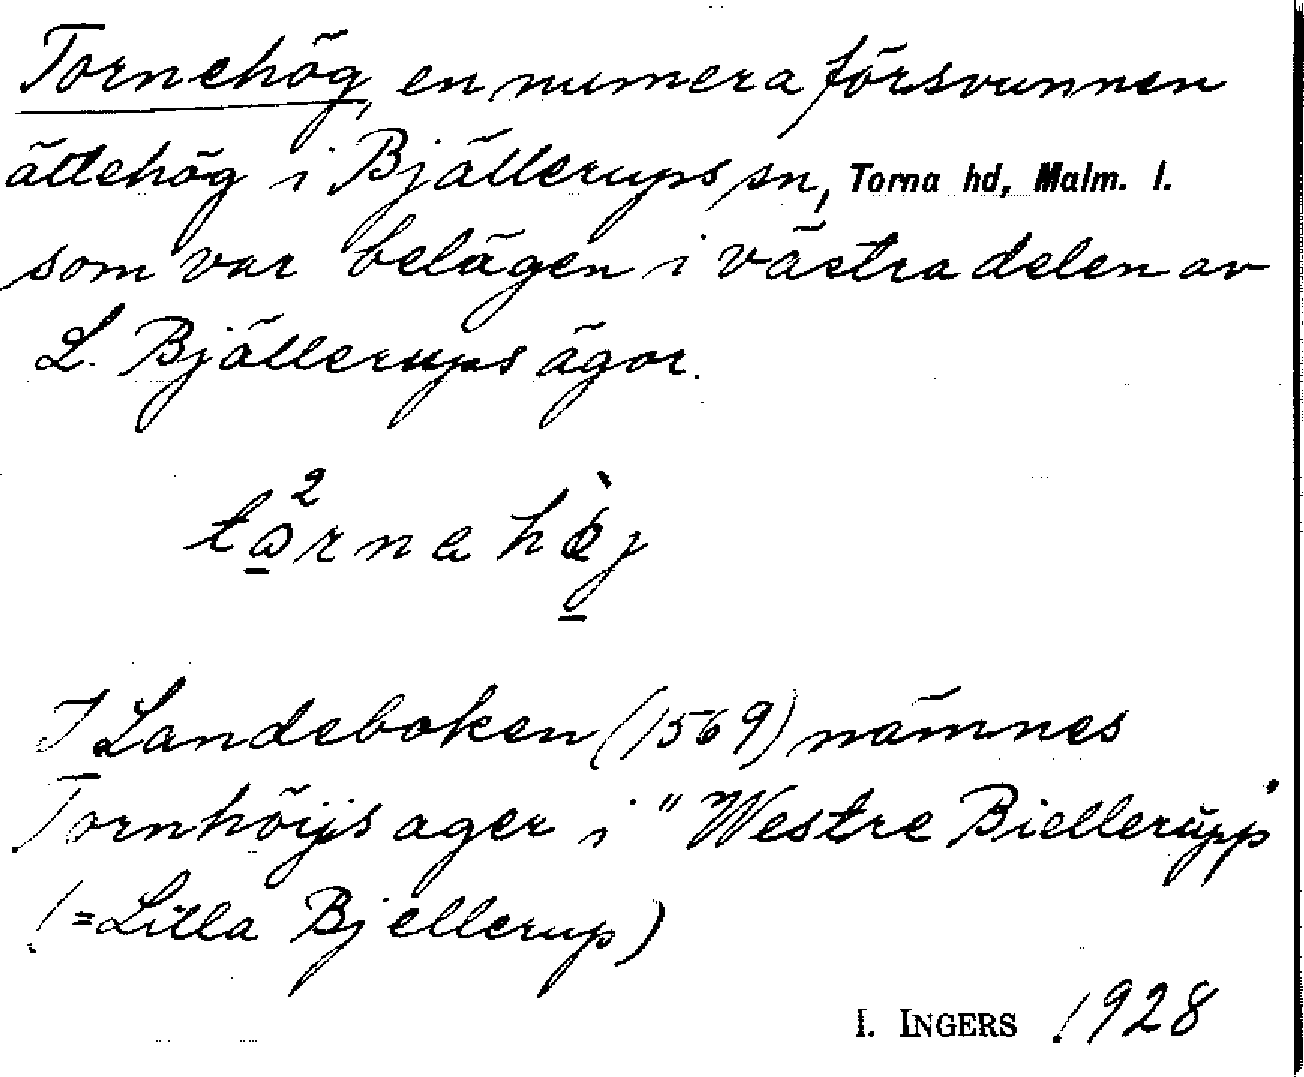 Tornehög, en numera försvunnen
ättehög i Bjällerups sn, Torna hd, Malm. l.
som var belägen i västra delen av
L. Bjällerups ägor.
I Landeboken (1569) nämnes
Tornhöijs ager i "Westre Biellerupp"
(=Lilla Bjellerup)
I. INGERS 1928